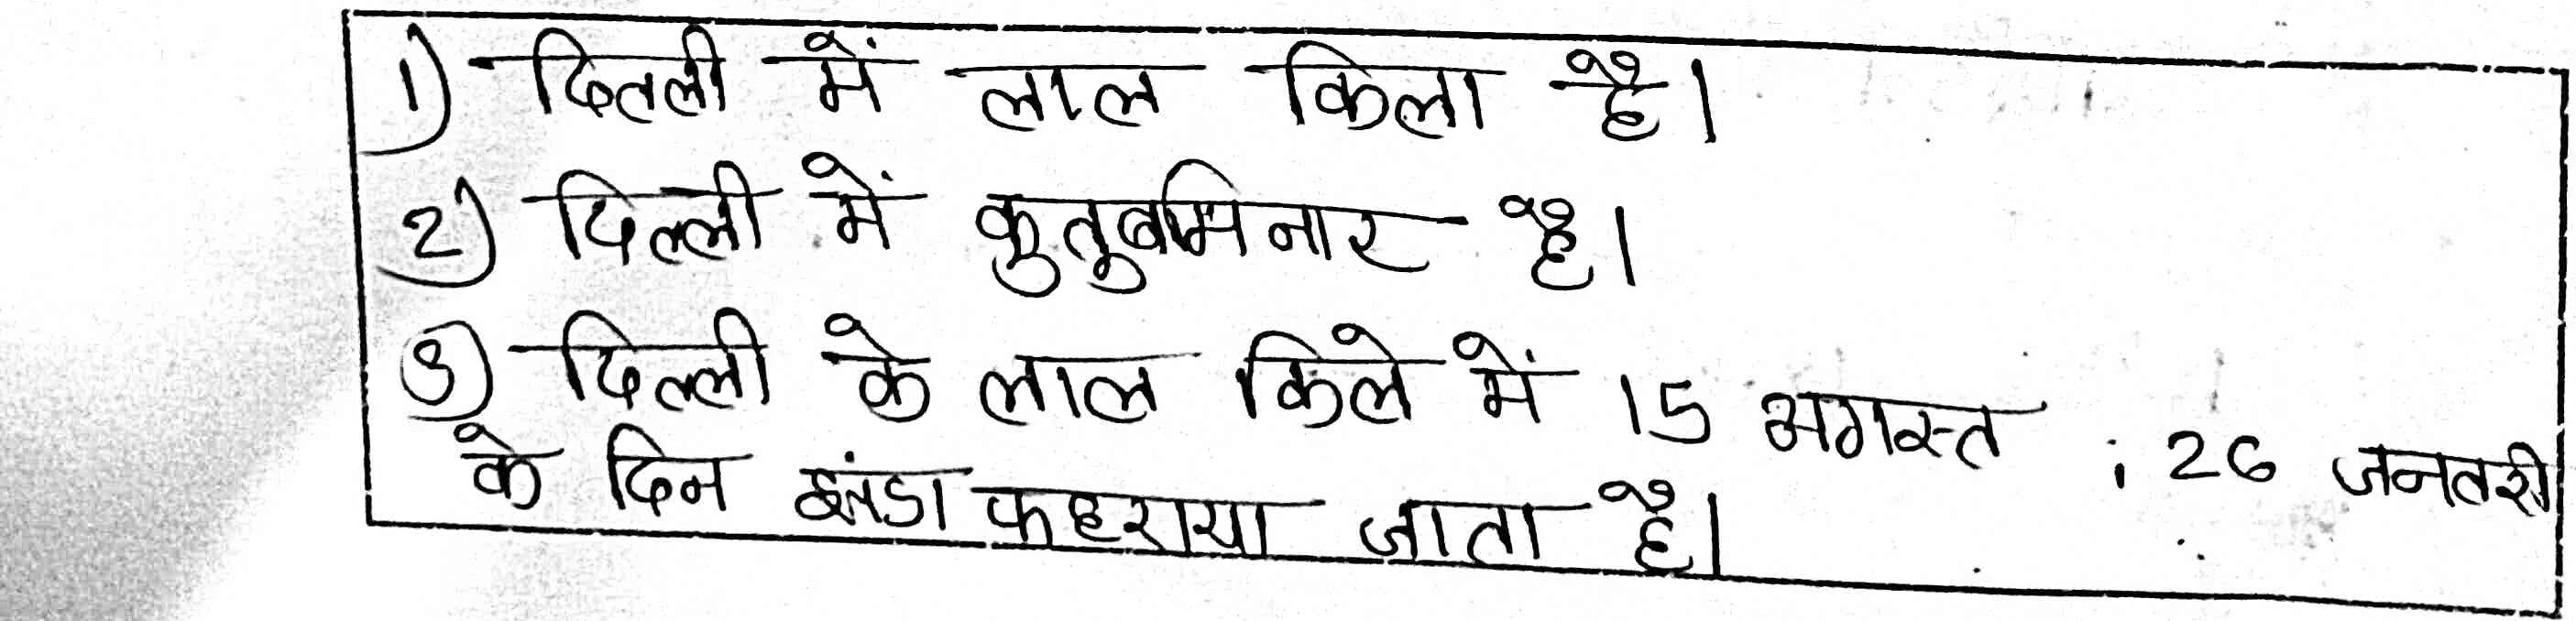 1) दिल्ली में लाल किला है।
2) दिल्ली में कुतुबमिनार है।
3) दिल्ली के लाल किले में 15 अगस्त , 26 जनवरी
के दिन झंडा फहराया जाता है।